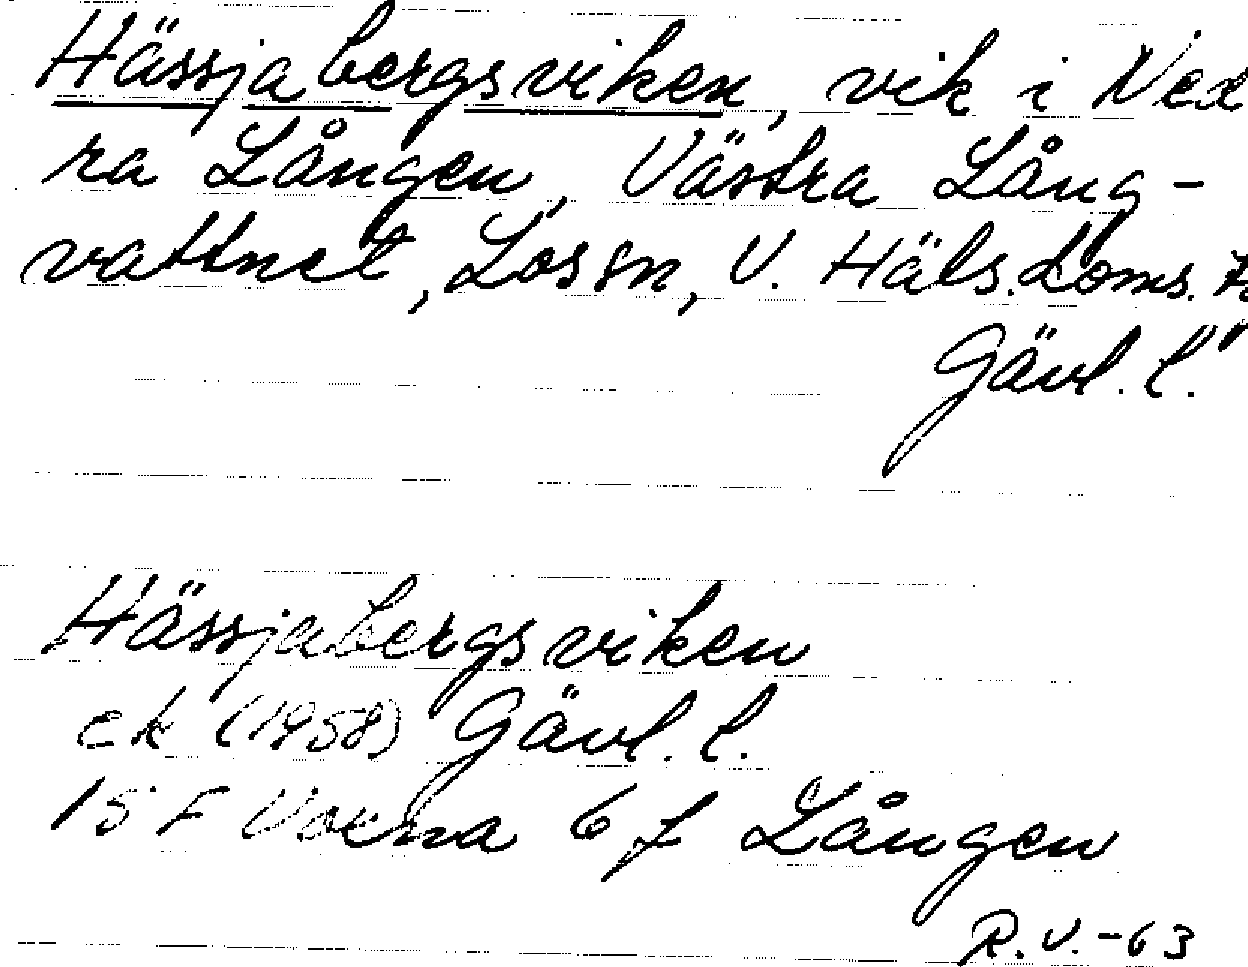 Hässjabergsviken, vik i Ned
ra Lången, Västra Lång-
vattnet, Lossn, V. Häls. doms.
Gävl. l.
Hässjabergsviken
ek (1958) Gävl. l.
15 F Voxna 6 f Lången
R.V.-63